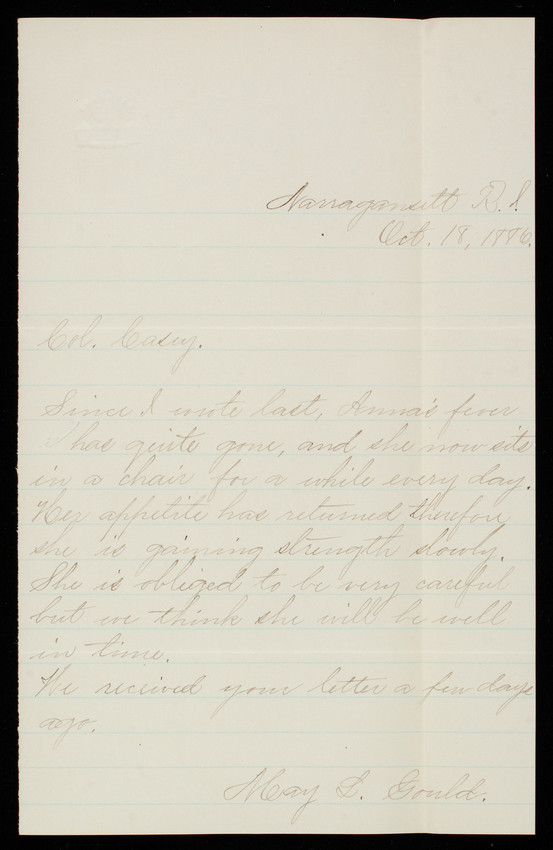 Narragansett R.I.
Oct. 18, 1886.
Col. Casey.
Since I wrote last, Anna's fever
has quite gone, and she now sits
in a chair for a while every day.
Her appetite has returned therefore
she is gaining strength slowly.
She is obliged to be very careful
but we think she will be well
in time.
We received your letter a few days
ago.
May L. Gould.